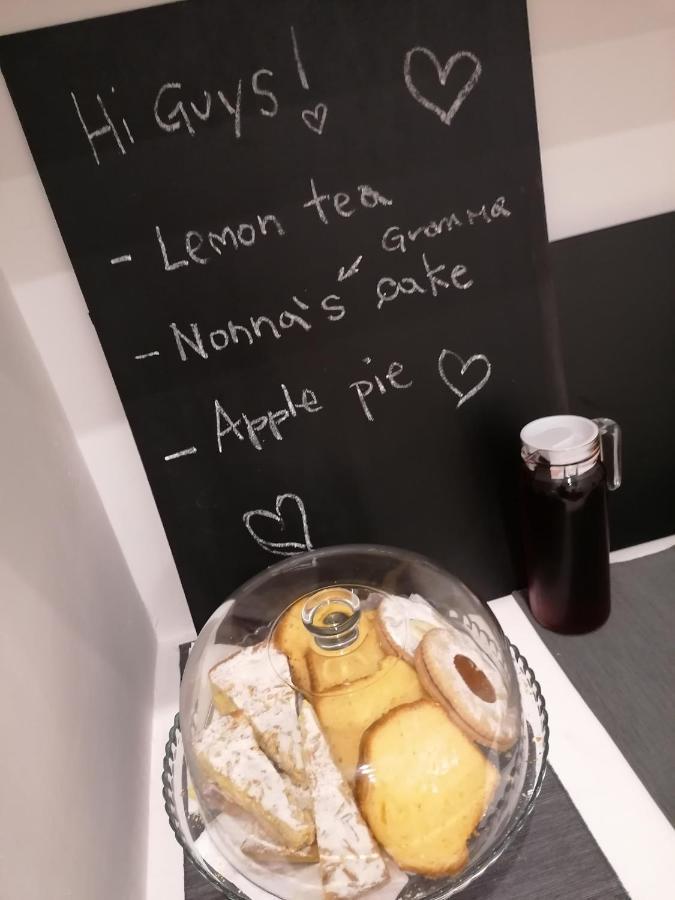 Hi Guys!
- Lemon tea
Gramma
- Nonna's cake
- Apple pie